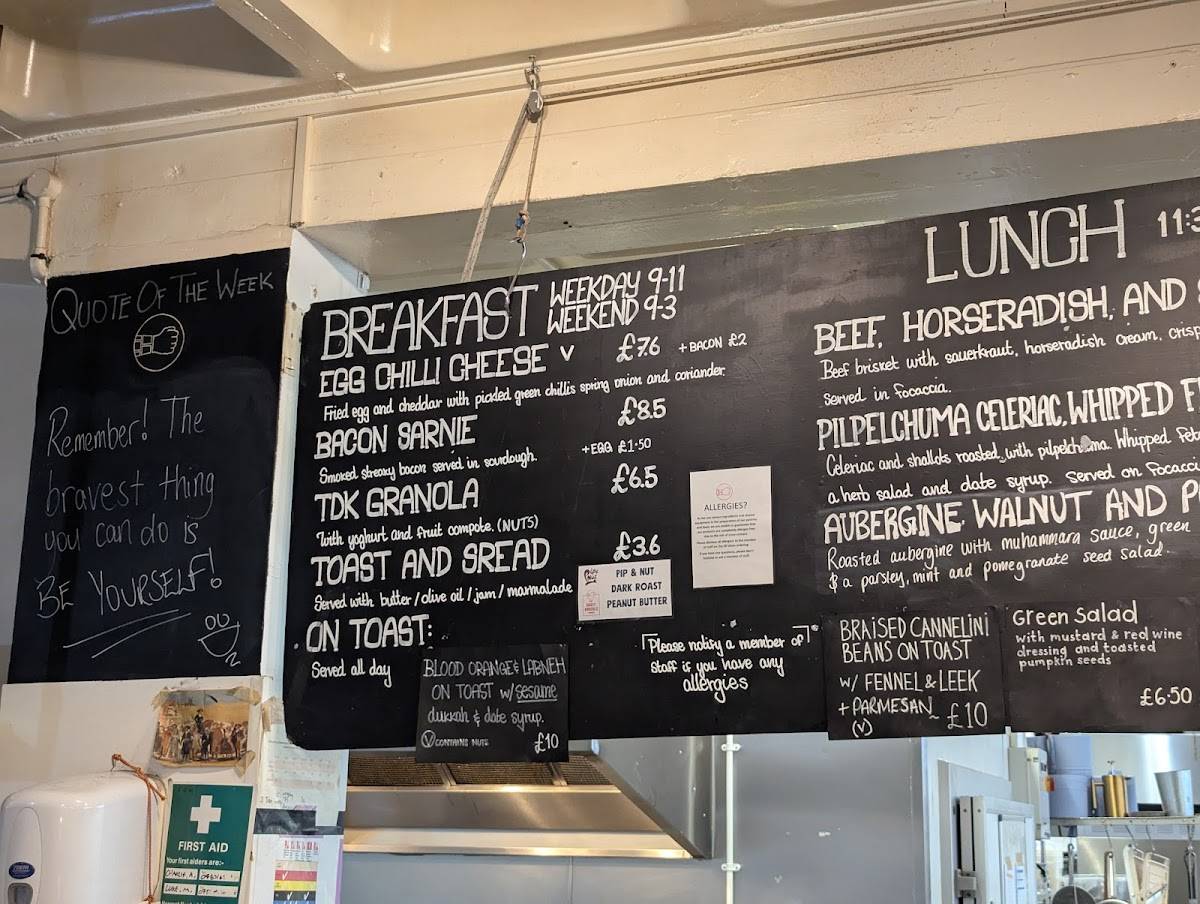 QUOTE OF THE WEEK
Remember! The
bravest thing
you can do is
BE YOURSELF!
BREAKFAST WEEKDAY 9-11
WEEKEND 9-3
EGG CHILLI CHEESE V £7.6 + BACON £2
Fried egg and cheddar with pickled green chillis spring onion and coriander.
BACON SARNIE £8.5
Smoked streaky bacon served in sourdough. + EGG £1.50
TDK GRANOLA £6.5
With yoghurt and fruit compote. (NUTS)
TOAST AND SREAD £3.6
Served with butter / olive oil / jam / marmalade
PIP & NUT
DARK ROAST
PEANUT BUTTER
ON TOAST:
Served all day
BLOOD ORANGE & LABNEH
ON TOAST w/ sesame
dukkah & date syrup.
V CONTAINS NUTS £10
ALLERGIES?
Please notify a member of
Staff if you have any
allergies
LUNCH 11:3
BEEF, HORSERADISH, AND
Beef brisket with sauerkraut, horseradish cream, crisp
Served in focaccia.
PILPELCHUMA CELERIAC, WHIPPED F
Celeriac and shallots roasted with pilpelchuma. Whipped Feta
a herb salad and date syrup. Served on Focacci
AUBERGINE WALNUT AND P
Roasted aubergine with muhammara sauce, green
& a parsley, mint and pomegranate seed salad
BRAISED CANNELINI
BEANS ON TOAST
W/ FENNEL & LEEK
+ PARMESAN £10
(V)
Green Salad
with mustard & red wine
dressing and toasted
pumpkin seeds
£6.50
FIRST AID
Your first aiders are:-